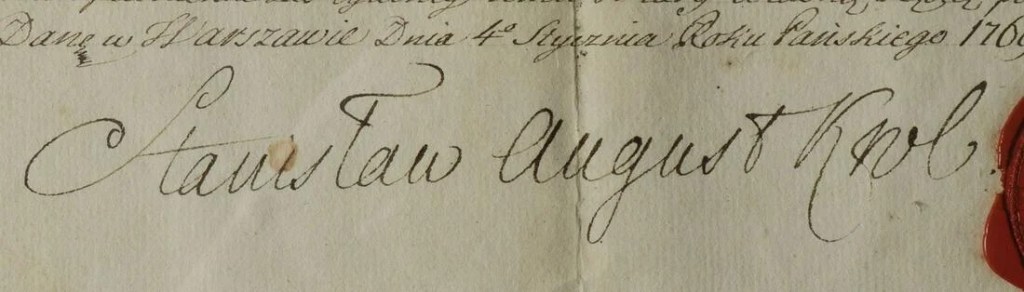 Dane w Warszawie Dnia 4º Stycznia Roku Pańskiego 176
Stanisław August Krol.